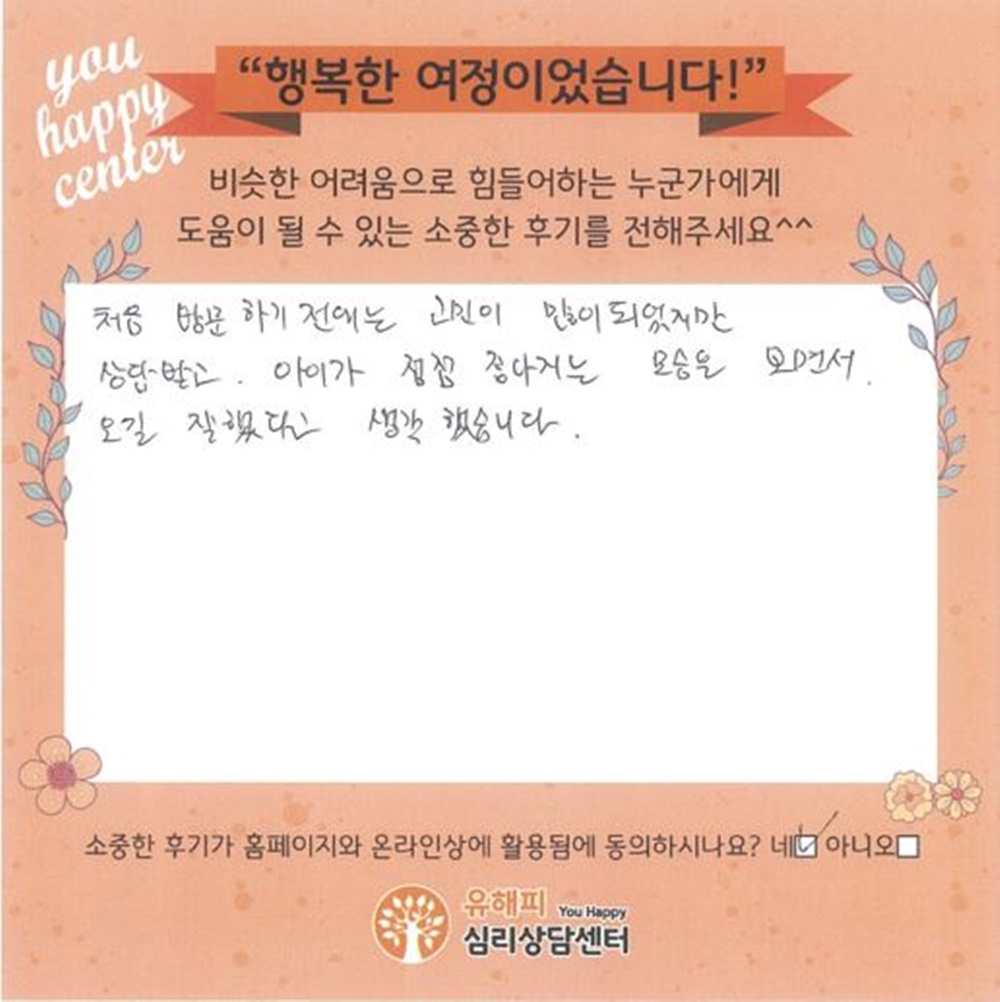 you
happy
center
“행복한 여정이었습니다!”
비슷한 어려움으로 힘들어하는 누군가에게
도움이 될 수 있는 소중한 후기를 전해주세요^^
처음 방문 하기 전에는 고민이 많이 되었지만
상담받고. 아이가 점점 좋아지는 모습을 보면서.
오길 잘했다고 생각 했습니다.
소중한 후기가 홈페이지와 온라인상에 활용됨에 동의하시나요? 네☑ 아니오☐
유해피 You Happy
심리상담센터